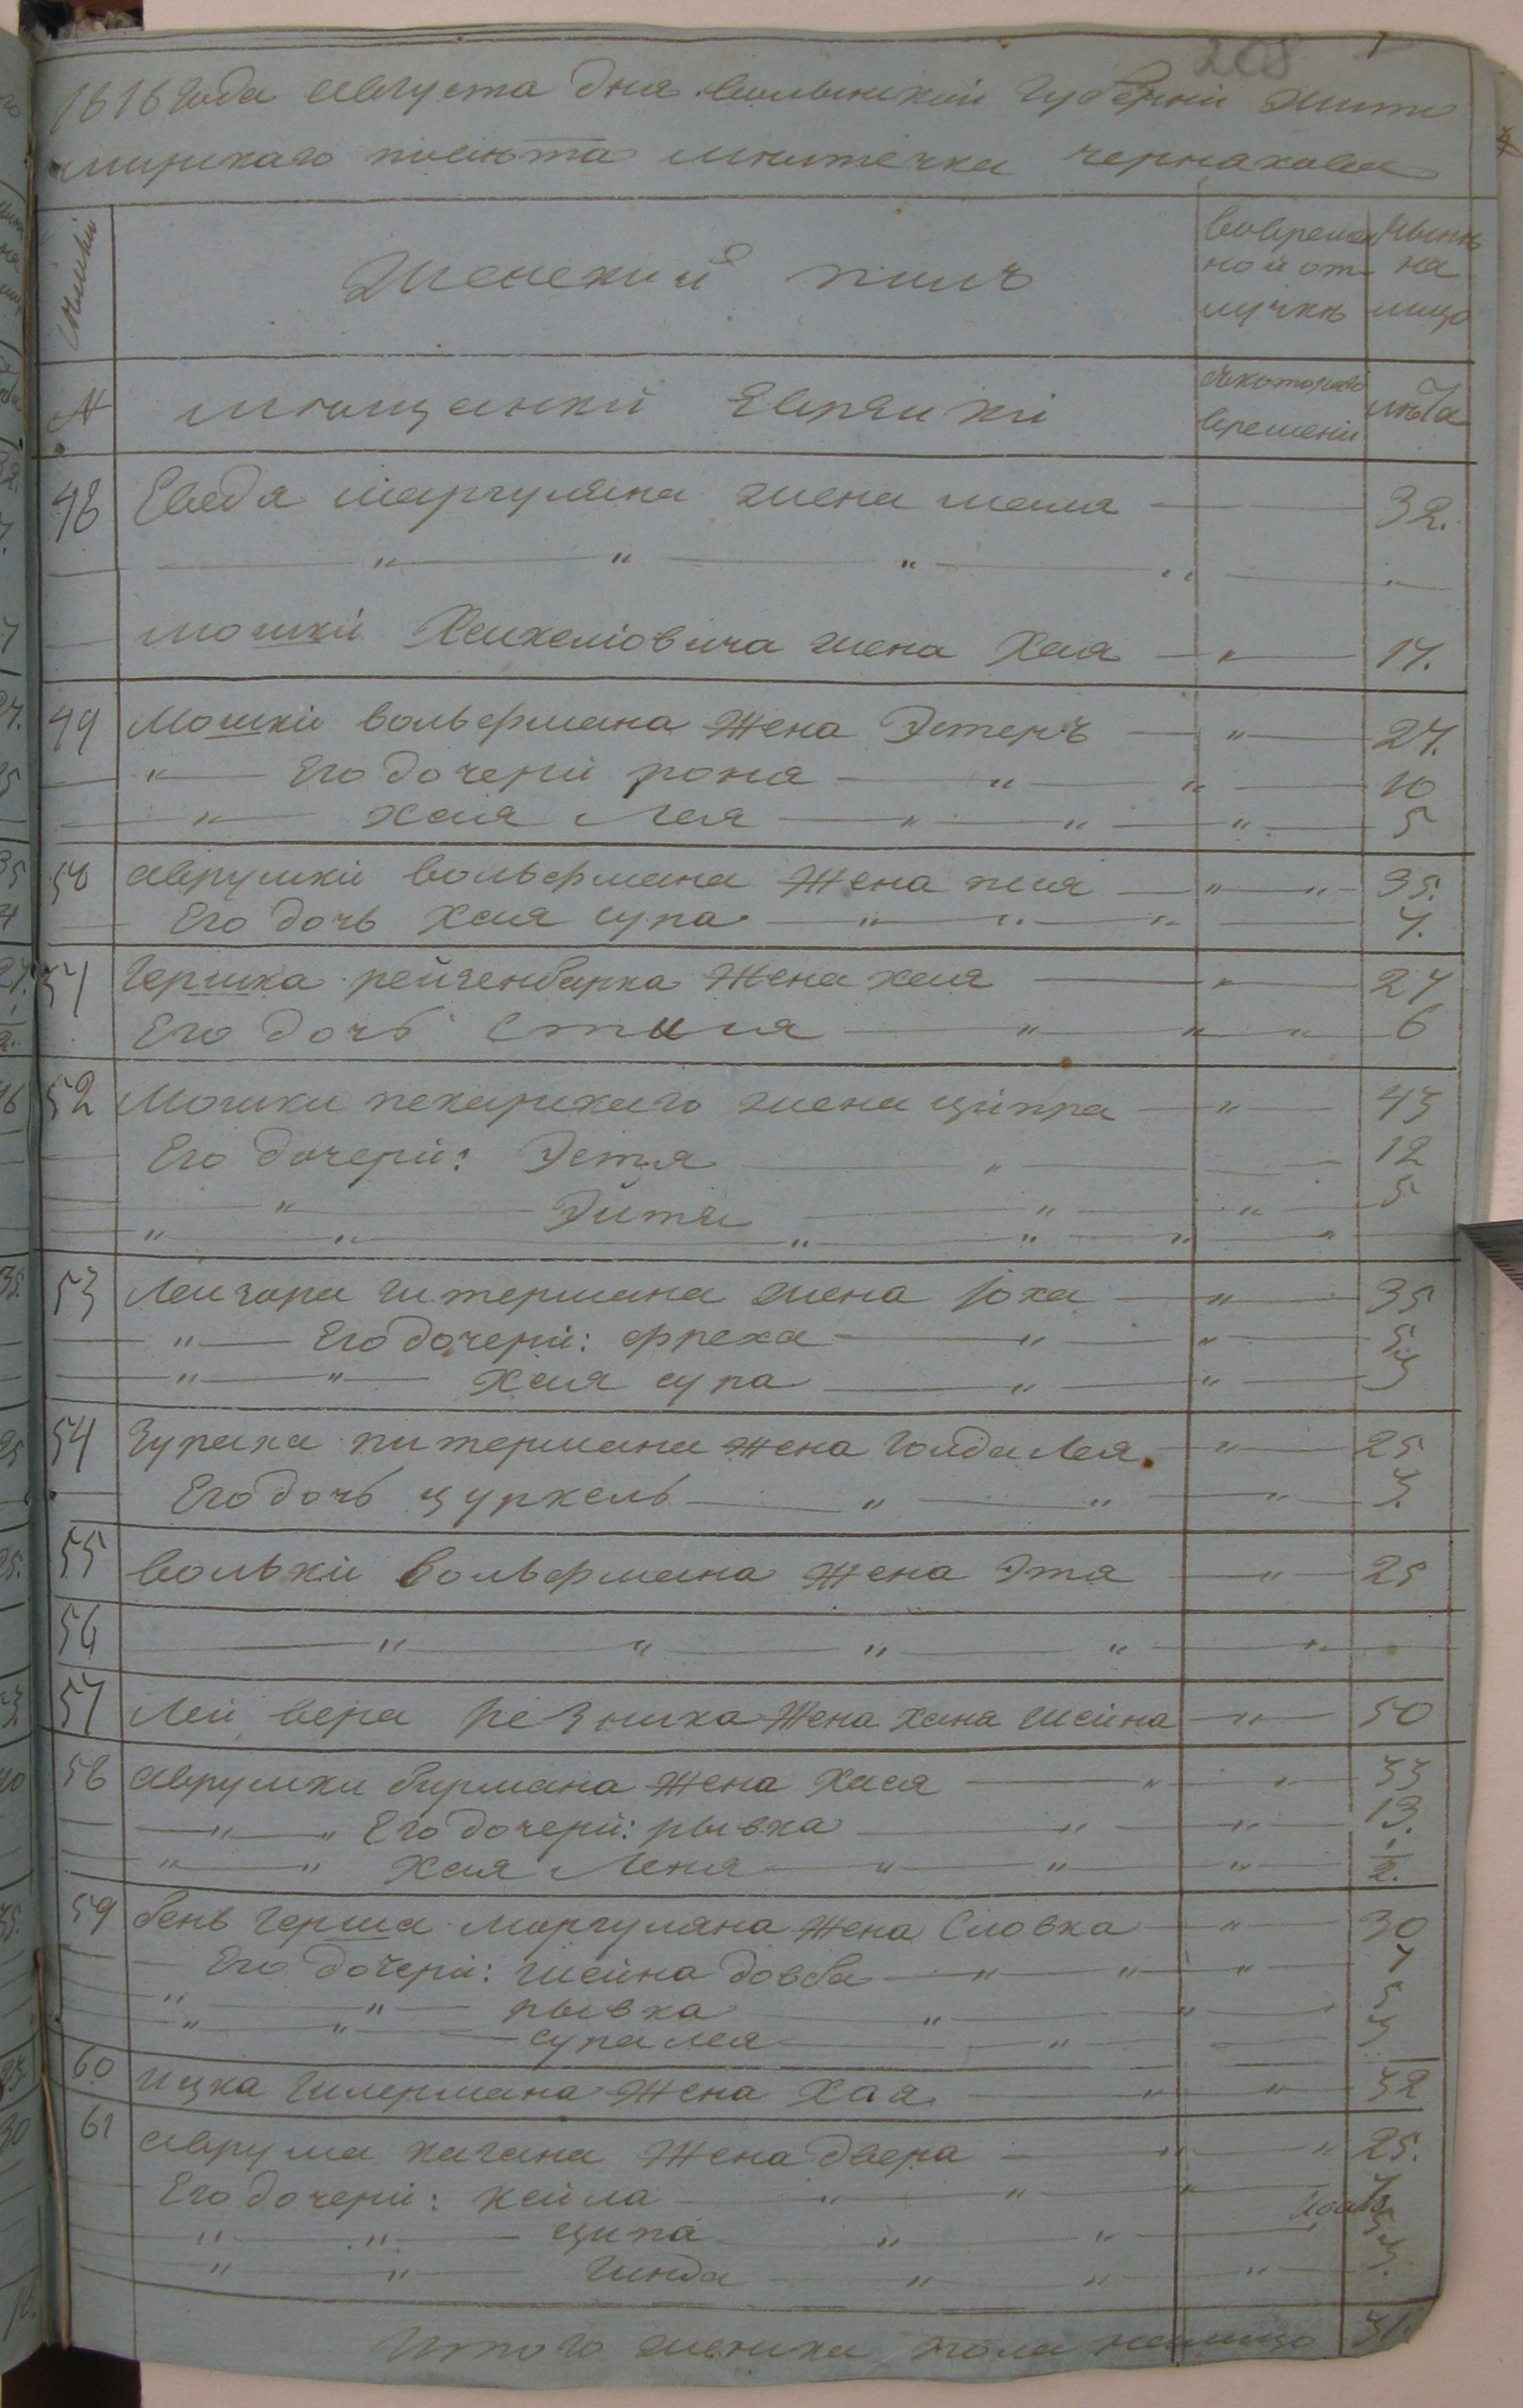 208
1816 года августа дня волынской губерній жито
мирскаго повѣта мѣстечка черняхова
Семьи
Женский полъ
вовремен ной от лучкѣ
Нынѣ на лицо
№
мѣщанкй Еврейкі
съкотораго времени
лѣта
48 жена 32.
мошки Хаскеліовича жена Хая 17.
49 Мошки вольфмана жена Эстеръ 27.
Его дочери рохля 10
Хая Лея 5
50 аврумки вольфмана жена 35.
Его дочь Хая сура 7.
51 Гершка рейзенбарка жена хая 27
Его дочь 6
52 Мошки пекарскаго жена ципра 43
Его дочери: Эстя 12
Эйтля 5
53 Лейзора гитермана жена Юха 35
Его дочери: фрейха 5
Хая сура 3
54 гитермана жена голда Лея 25
Его дочь цуркель 3.
55 вольки вольфмана жена Этя 25
56
57 Лейвера Резника жена хана шейна 50
58 аврумки бирмана жена Хася 33
Его дочери: рывка 13.
Хая Леня 1/2.
59 бень герша маргуляна жена Словка 30
Его дочери: шейна довба 7
рывка 5
сура лея 3
60 ицка гилермана жена Хая 32
61 аврума кагана жена двера 25.
Его дочери: кейла 7
ципа 5
гинда 3.
Итого женска пола налицо 31.